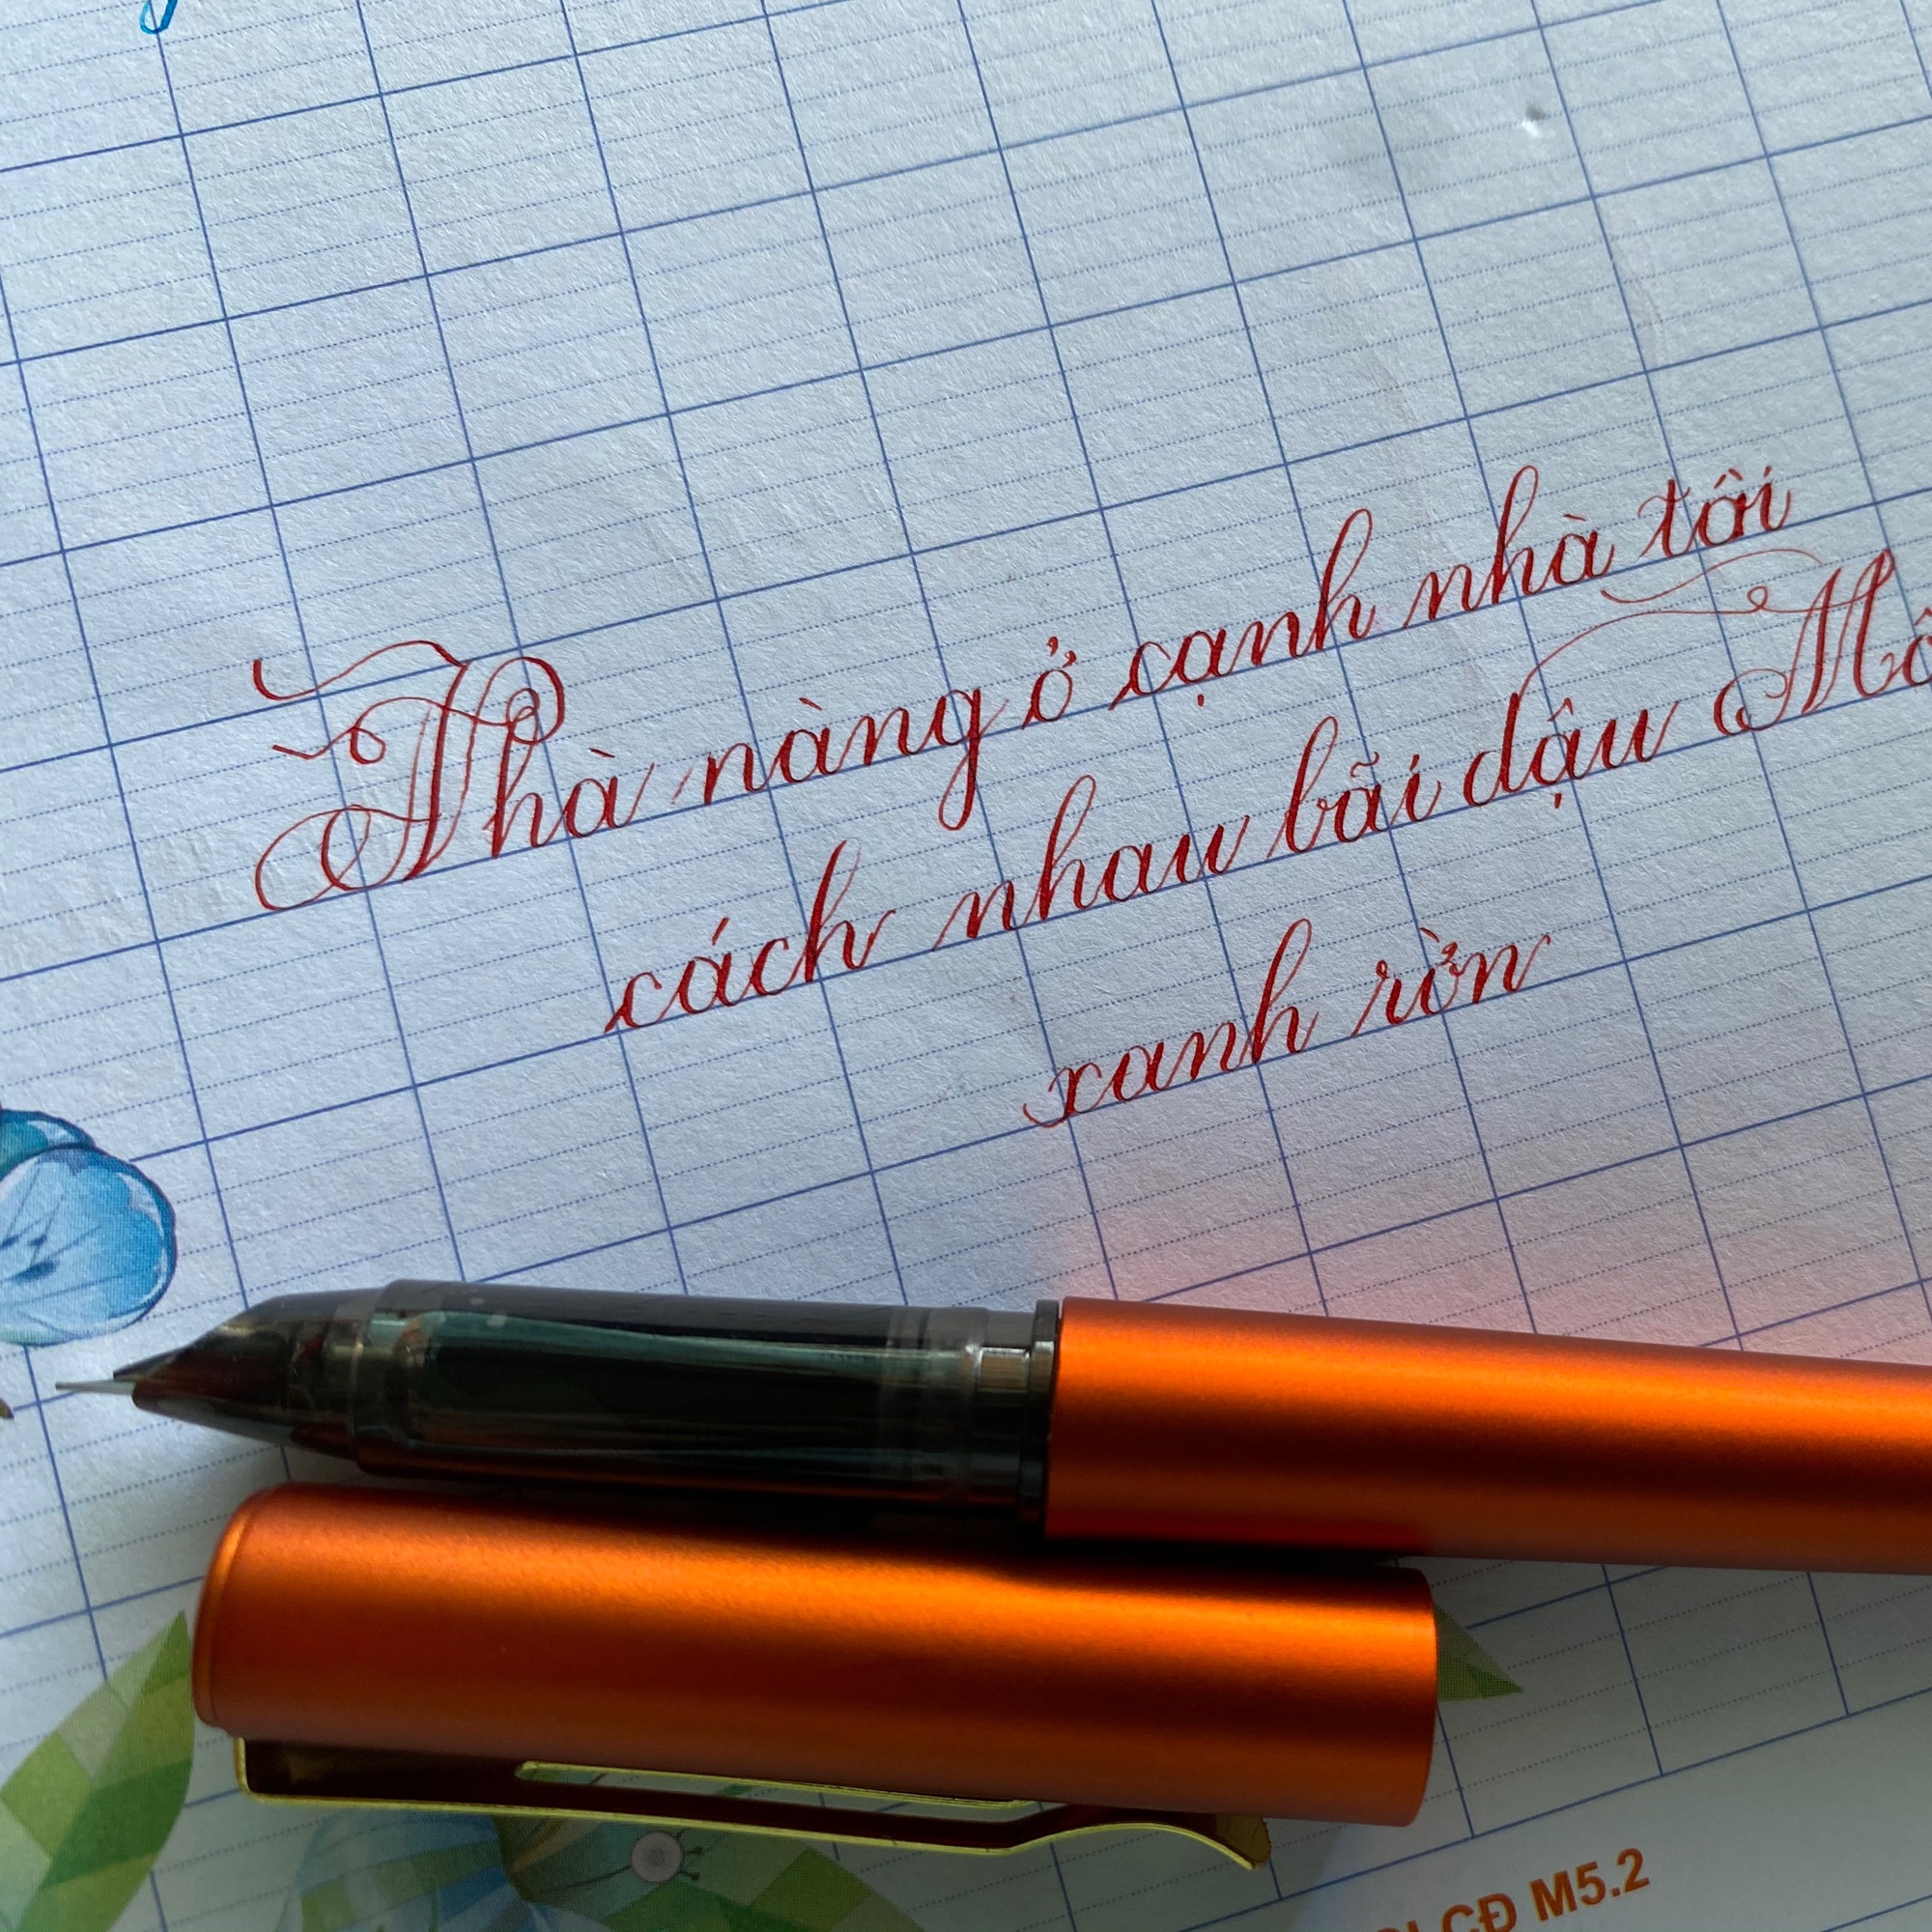 Nhà nàng ở cạnh nhà tôi
cách nhau bãi dậu Mô
xanh rờn
CĐ M5.2